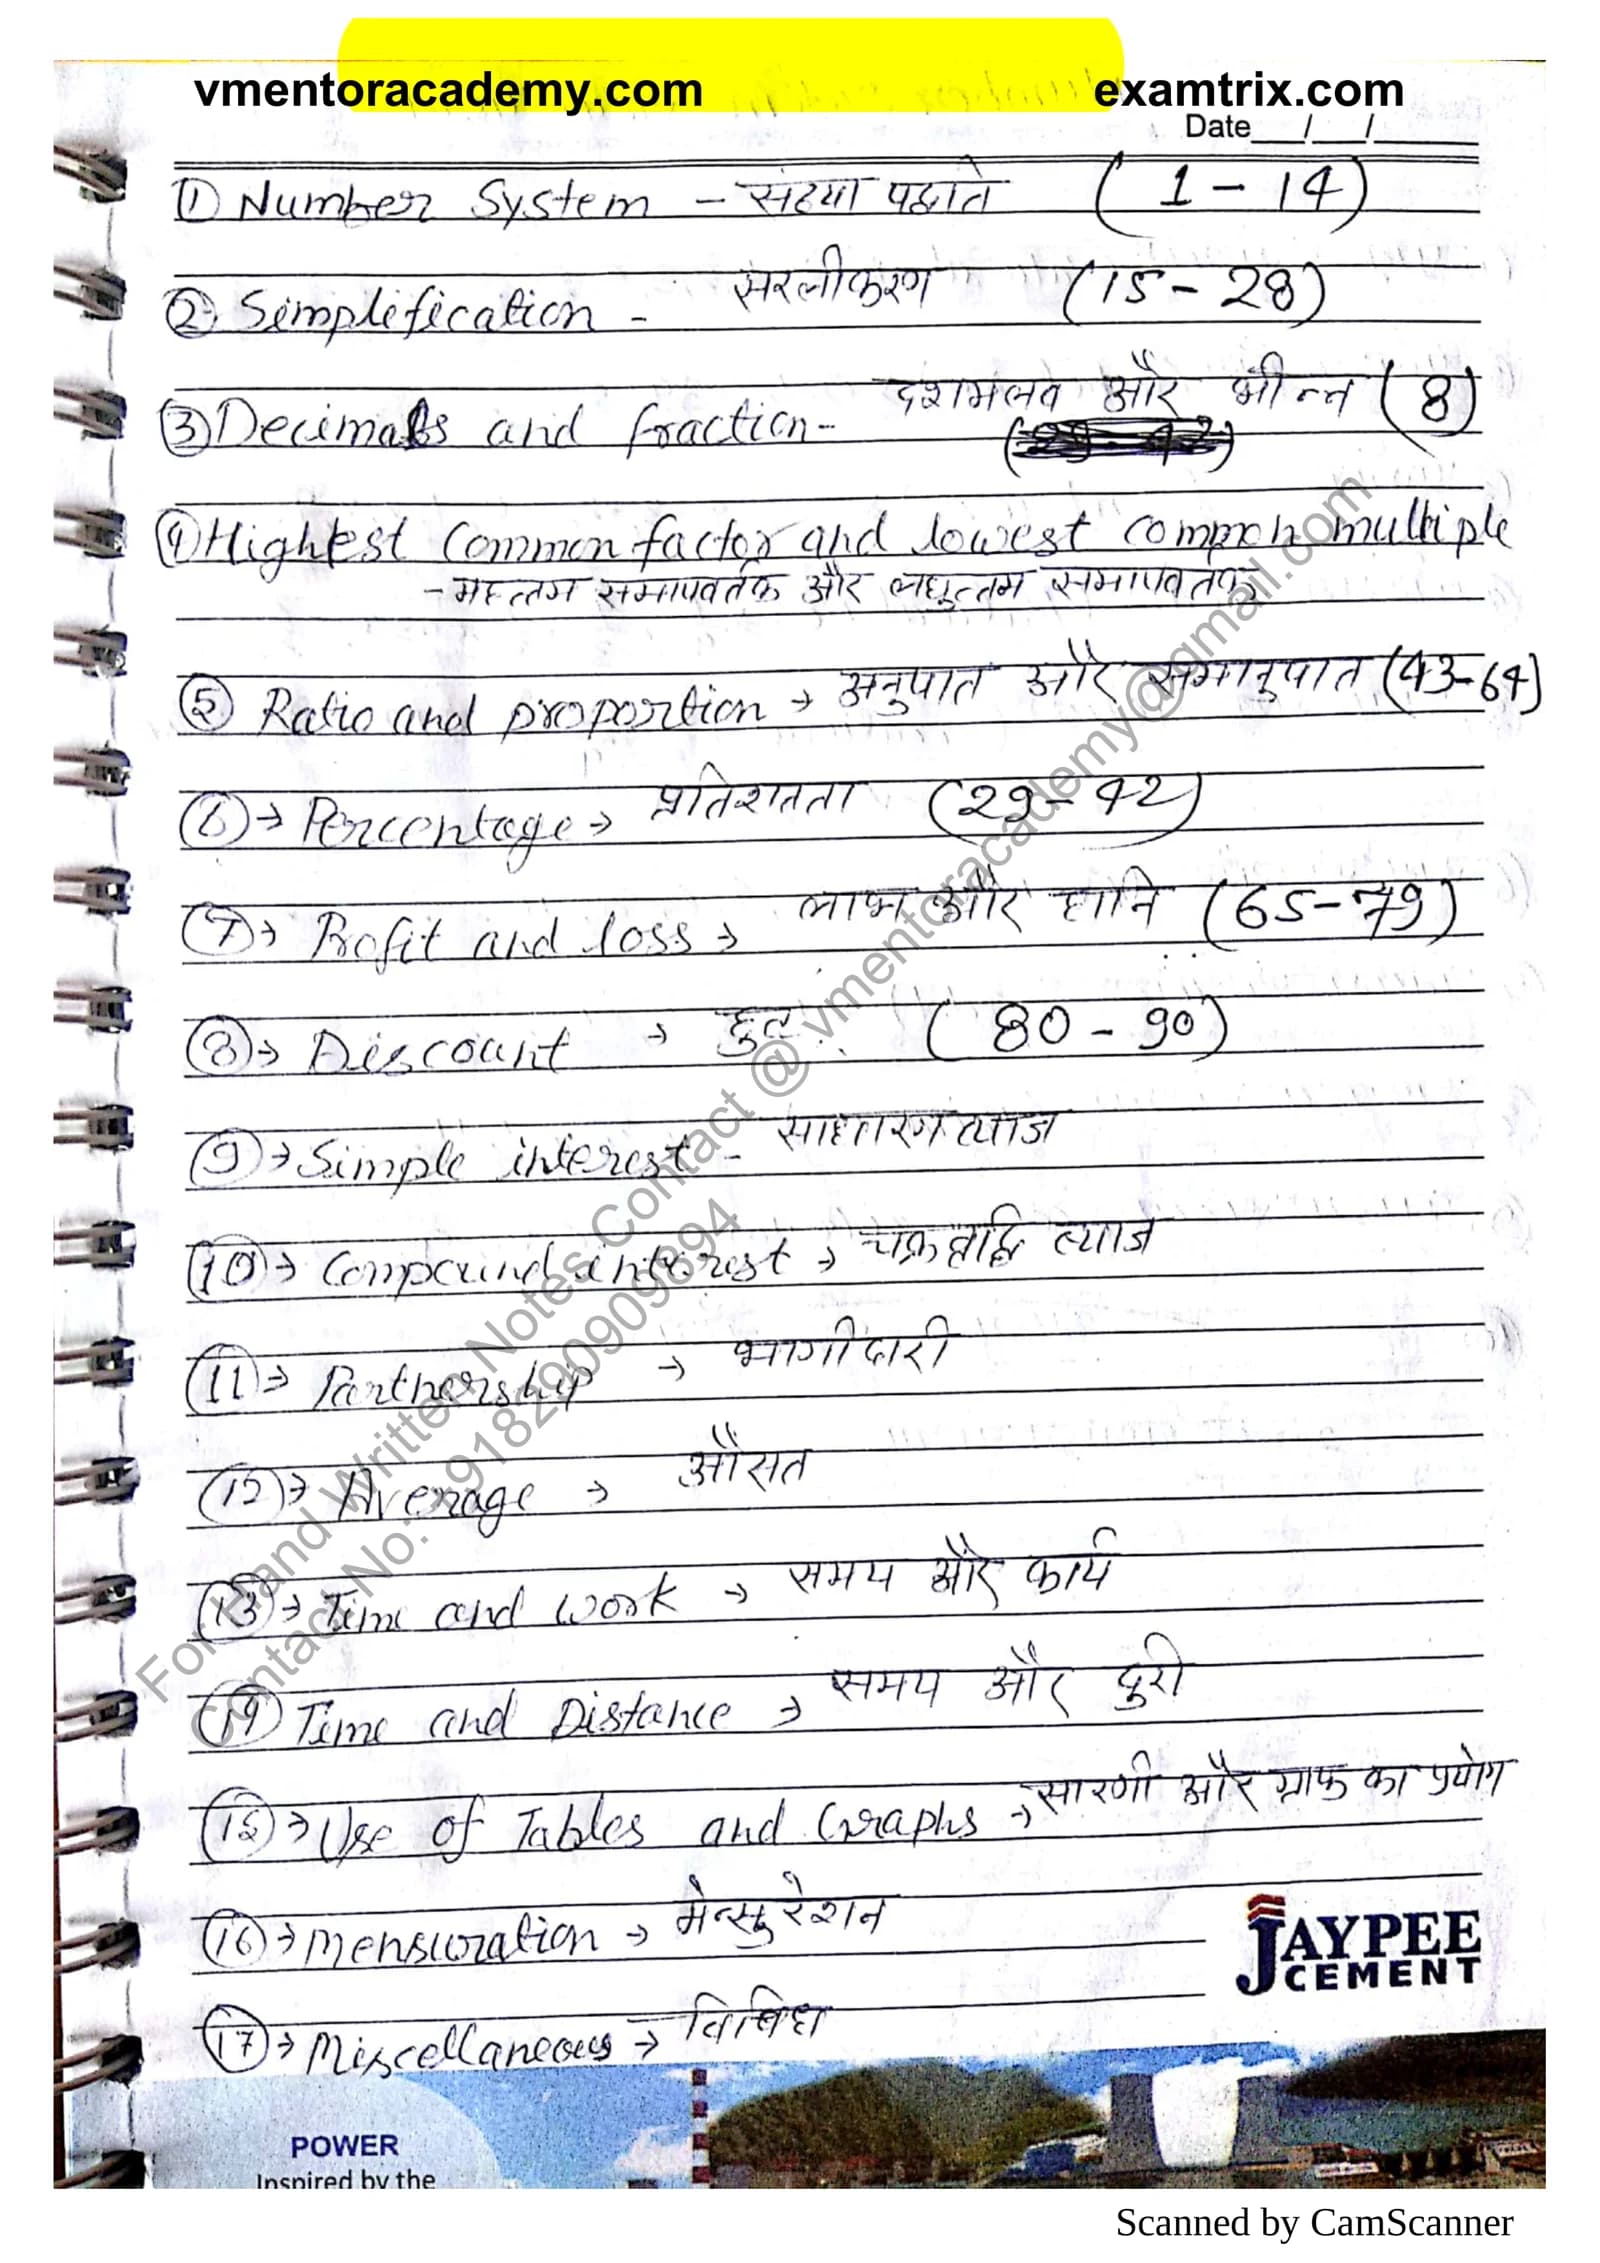 vmentoracademy.com examtrix.com
Date __/__/__
① Number System - संख्या पद्धति (1 - 14)
② Simplification - सरलीकरण (15 - 28)
③ Decimals and fraction - दशमलव और भीन्न (8)
④ Highest Common factor and lowest common multiple
- महत्तम समापवर्तक और लघुत्तम समापवर्तक
⑤ Ratio and proportion → अनुपात और समानुपात (43-64)
⑥ → Percentage → प्रतिशतता (29 - 42)
⑦ → Profit and loss → लाभ और हानि (65 - 79)
⑧ → Discount → छुट (80 - 90)
⑨ → Simple interest - साधारण ब्याज
⑩ → Compound interest → चक्रवृद्धि ब्याज
⑪ → Partnership → भागीदारी
⑫ → Average → औसत
⑬ → Time and work → समय और कार्य
⑭ Time and Distance → समय और दुरी
⑮ → Use of Tables and Graphs → सारणी और ग्राफ का प्रयोग
⑯ → Mensuration → मेन्सुरेशन
⑰ → Miscellaneous → विविध
For Hand Written Notes Contact @ vmentoracademy@gmail.com
Contact No: +918290909894
JAYPEE
CEMENT
POWER
Inspired by the
Scanned by CamScanner